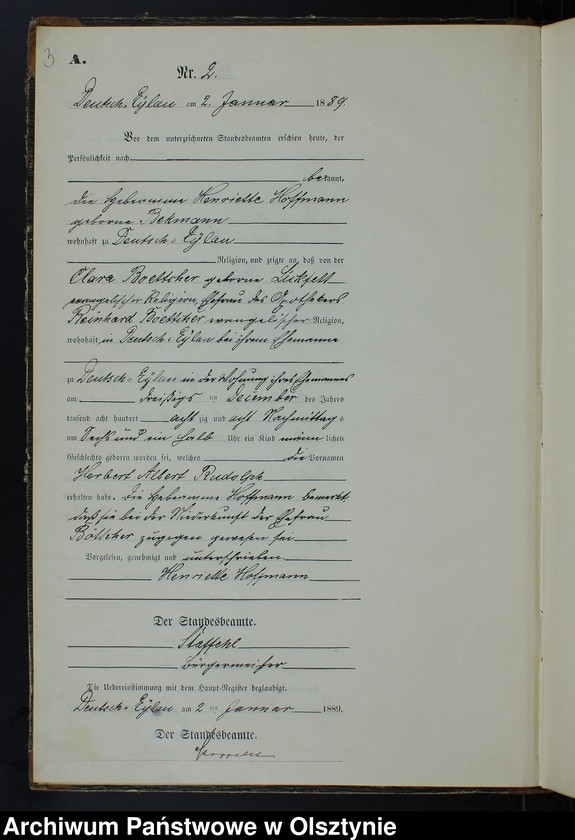 3
A.
Nr. 2.
Deutsch-Eylau am 2. Januar 1889.
Vor dem unterzeichneten Standesbeamten erschien heute, der
Persönlichkeit nach
bekannt,
die Hebeamme Henriette Hoffmann
geborne Bekmann
wohnhaft zu Deutsch-Eylau
Religion, und zeigte an, daß von der
Clara Boettcher geborne Lickfett
evangelischer Religion, Ehefrau des Apothekers
Reinhard Boettcher evangelischer Religion,
wohnhaft in Deutsch-Eylau bei ihrem Ehemanne
zu Deutsch-Eylau in der Wohnung ihres Ehemannes
am dreißigs ten December des Jahres
tausend acht hundert acht zig und acht Nachmittag s
um sechs und ein halb Uhr ein Kind männ lichen
Geschlechts geboren worden sei, welches die Vornamen
Herbert Albert Rudolph
erhalten habe. Die Hebeamme Hoffmann bemerkt
daß sie bei der Niederkunft der Ehefrau
Böttcher zugegen gewesen sei
Vorgelesen, genehmigt und unterschrieben.
Henriette Hoffmann
Der Standesbeamte.
Staffehl
Bürgermeister
Die Uebereinstimmung mit dem Haupt-Register beglaubigt.
Deutsch-Eylau am 2 ten Januar 1889.
Der Standesbeamte.
Archiwum Państwowe w Olsztynie